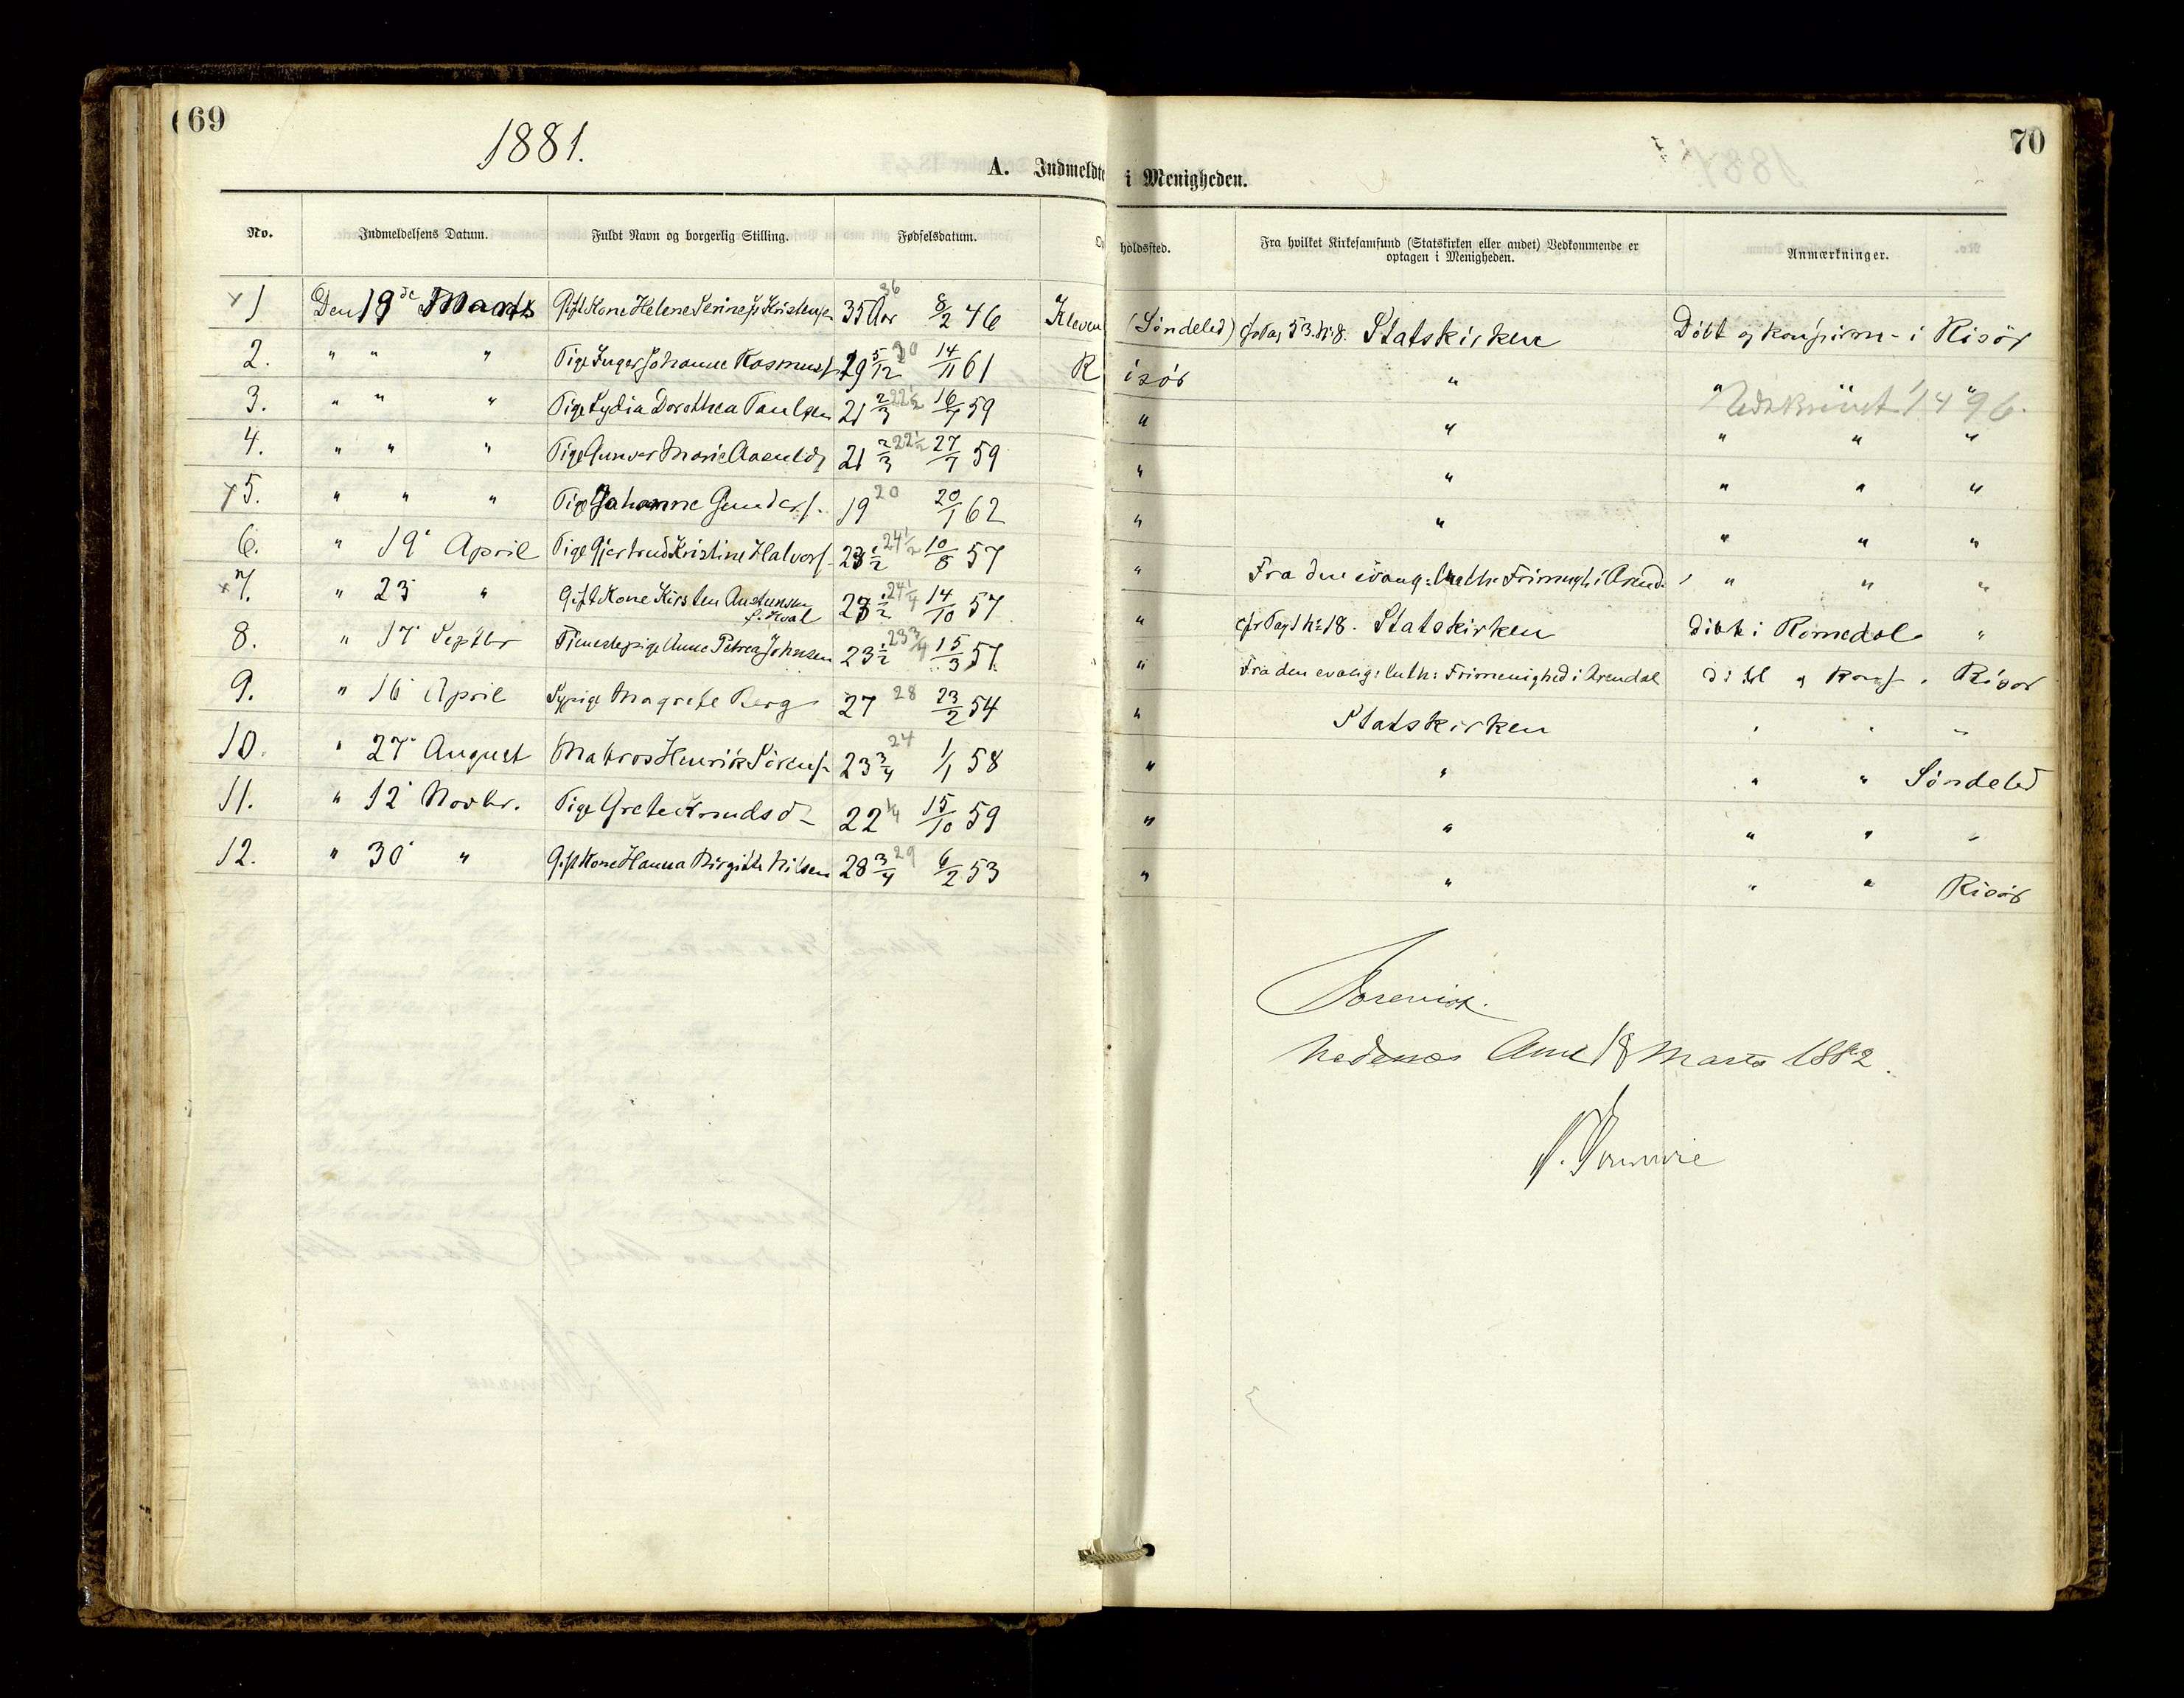 69
1881.
A. Indmeldte i Menigheden.
70
No. Indmeldelsens Datum. Fuldt Navn og borgerlig Stilling. Fødselsdatum. Op holdssted. Fra hvilket Kirkesamfund (Statskirken eller andet) Vedkommende er optagen i Menigheden. Anmærkninger.
x 1 Den 19de Marts Gift Kone Helene Serine Kristensen 35 Aar 36 8/2 46 Kleven (Söndeled) cfr Pag 53. No 8. Statskirken Döbt og konfirm- i Risör
2. " " " Pige Inger Johanne Rasmuss 19 5/12 20 14/11 61 Risör " " " "
3. " " " Pige Lydia Dorothea Paulsen 21 2/3 22 1/2 16/7 59 " " " " " Udskrevet 1/4 96.
4. " " " Pige Gunvor Marie 21 2/3 22 1/2 27/7 59 " " " " "
x 5. " " " Pige Johanne Gunders. 19 20 20/1 62 " " " " "
6. " 19' April Pige Gjertrud Kristine Halvors. 23 1/2 24 1/2 10/8 57 " Fra den evang: luth: Frimengh: i Arend. " " "
x 7. " 23' " Gift Kone Kirsten Austensen f. Hval 23 1/2 24 1/4 14/10 57 " cfr Pag 1 No 18. Statskirken döbt i Romedal "
8. " 17' Septbr Tjenestepige Anne Petrea Johnsen 23 1/2 23 3/4 15/3 57. " Fra den evang: luth: Frimenighed i Arendal döbt og konf. i Risör
9. " 16' April Sypige Magrete Berg 27 28 23/2 54 " Statskirken " " "
10. " 27' August Matros Henrik Sörens. 23 3/4 24 1/1 58 " " " " Söndeled
11. " 12' Novbr. Pige Grete Knudsd- 22 1/4 15/10 59 " " " " "
12. " 30' " Gift Kone Hanna Birgitte Nilsen 28 3/4 29 6/2 53 " " " " Risör
Forevist.
Nedenes Amt 18 Marts 1882.